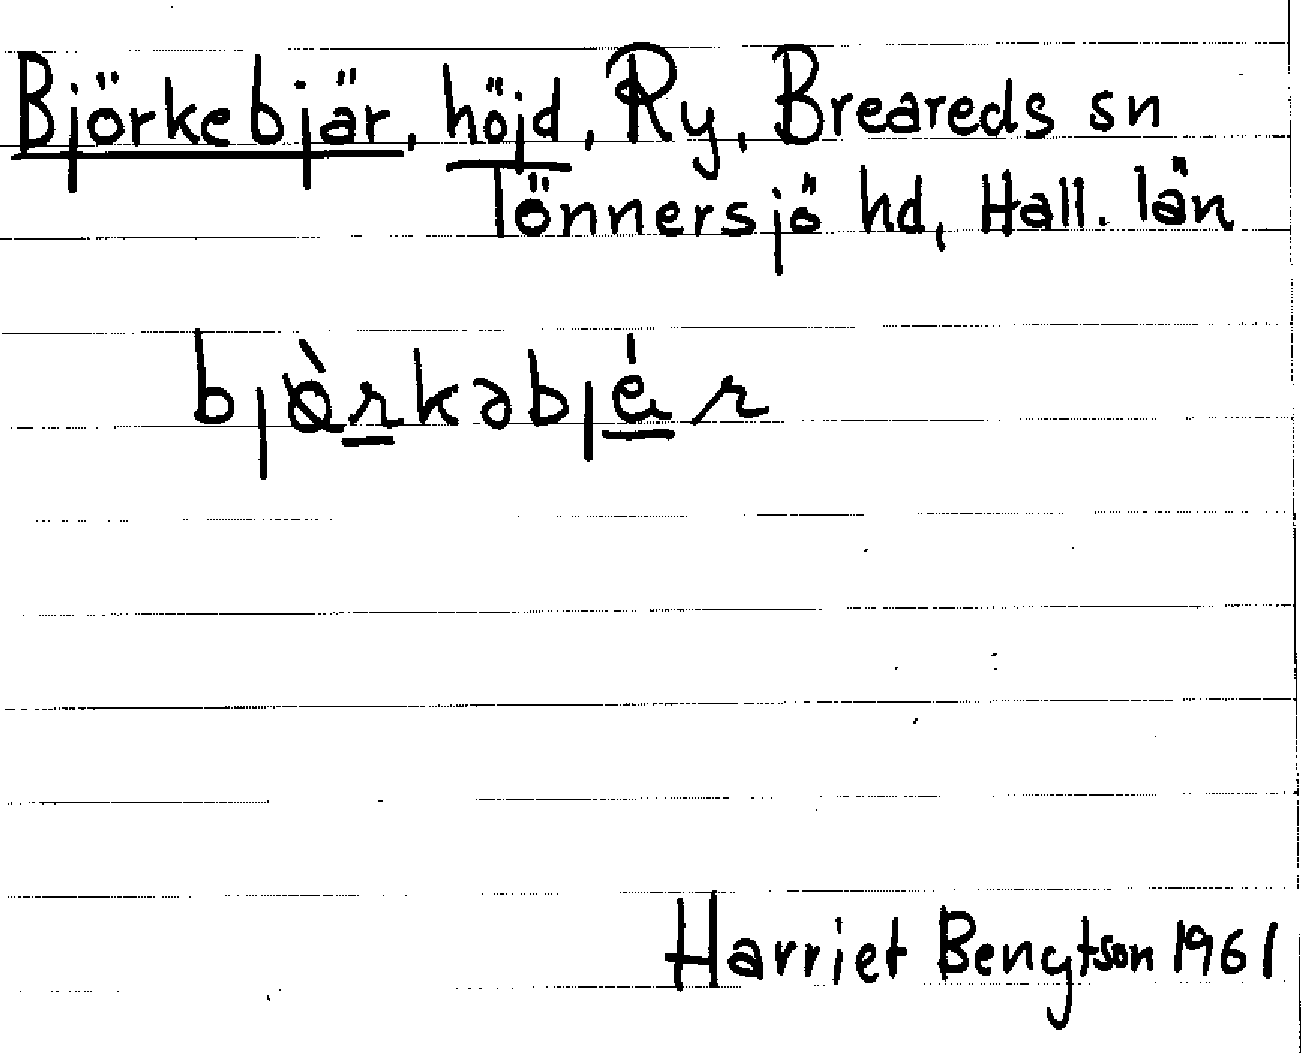 Björkebjär, höjd, Ry, Breareds sn
Tönnersjö hd, Hall. län
Harriet Bengtson 1961